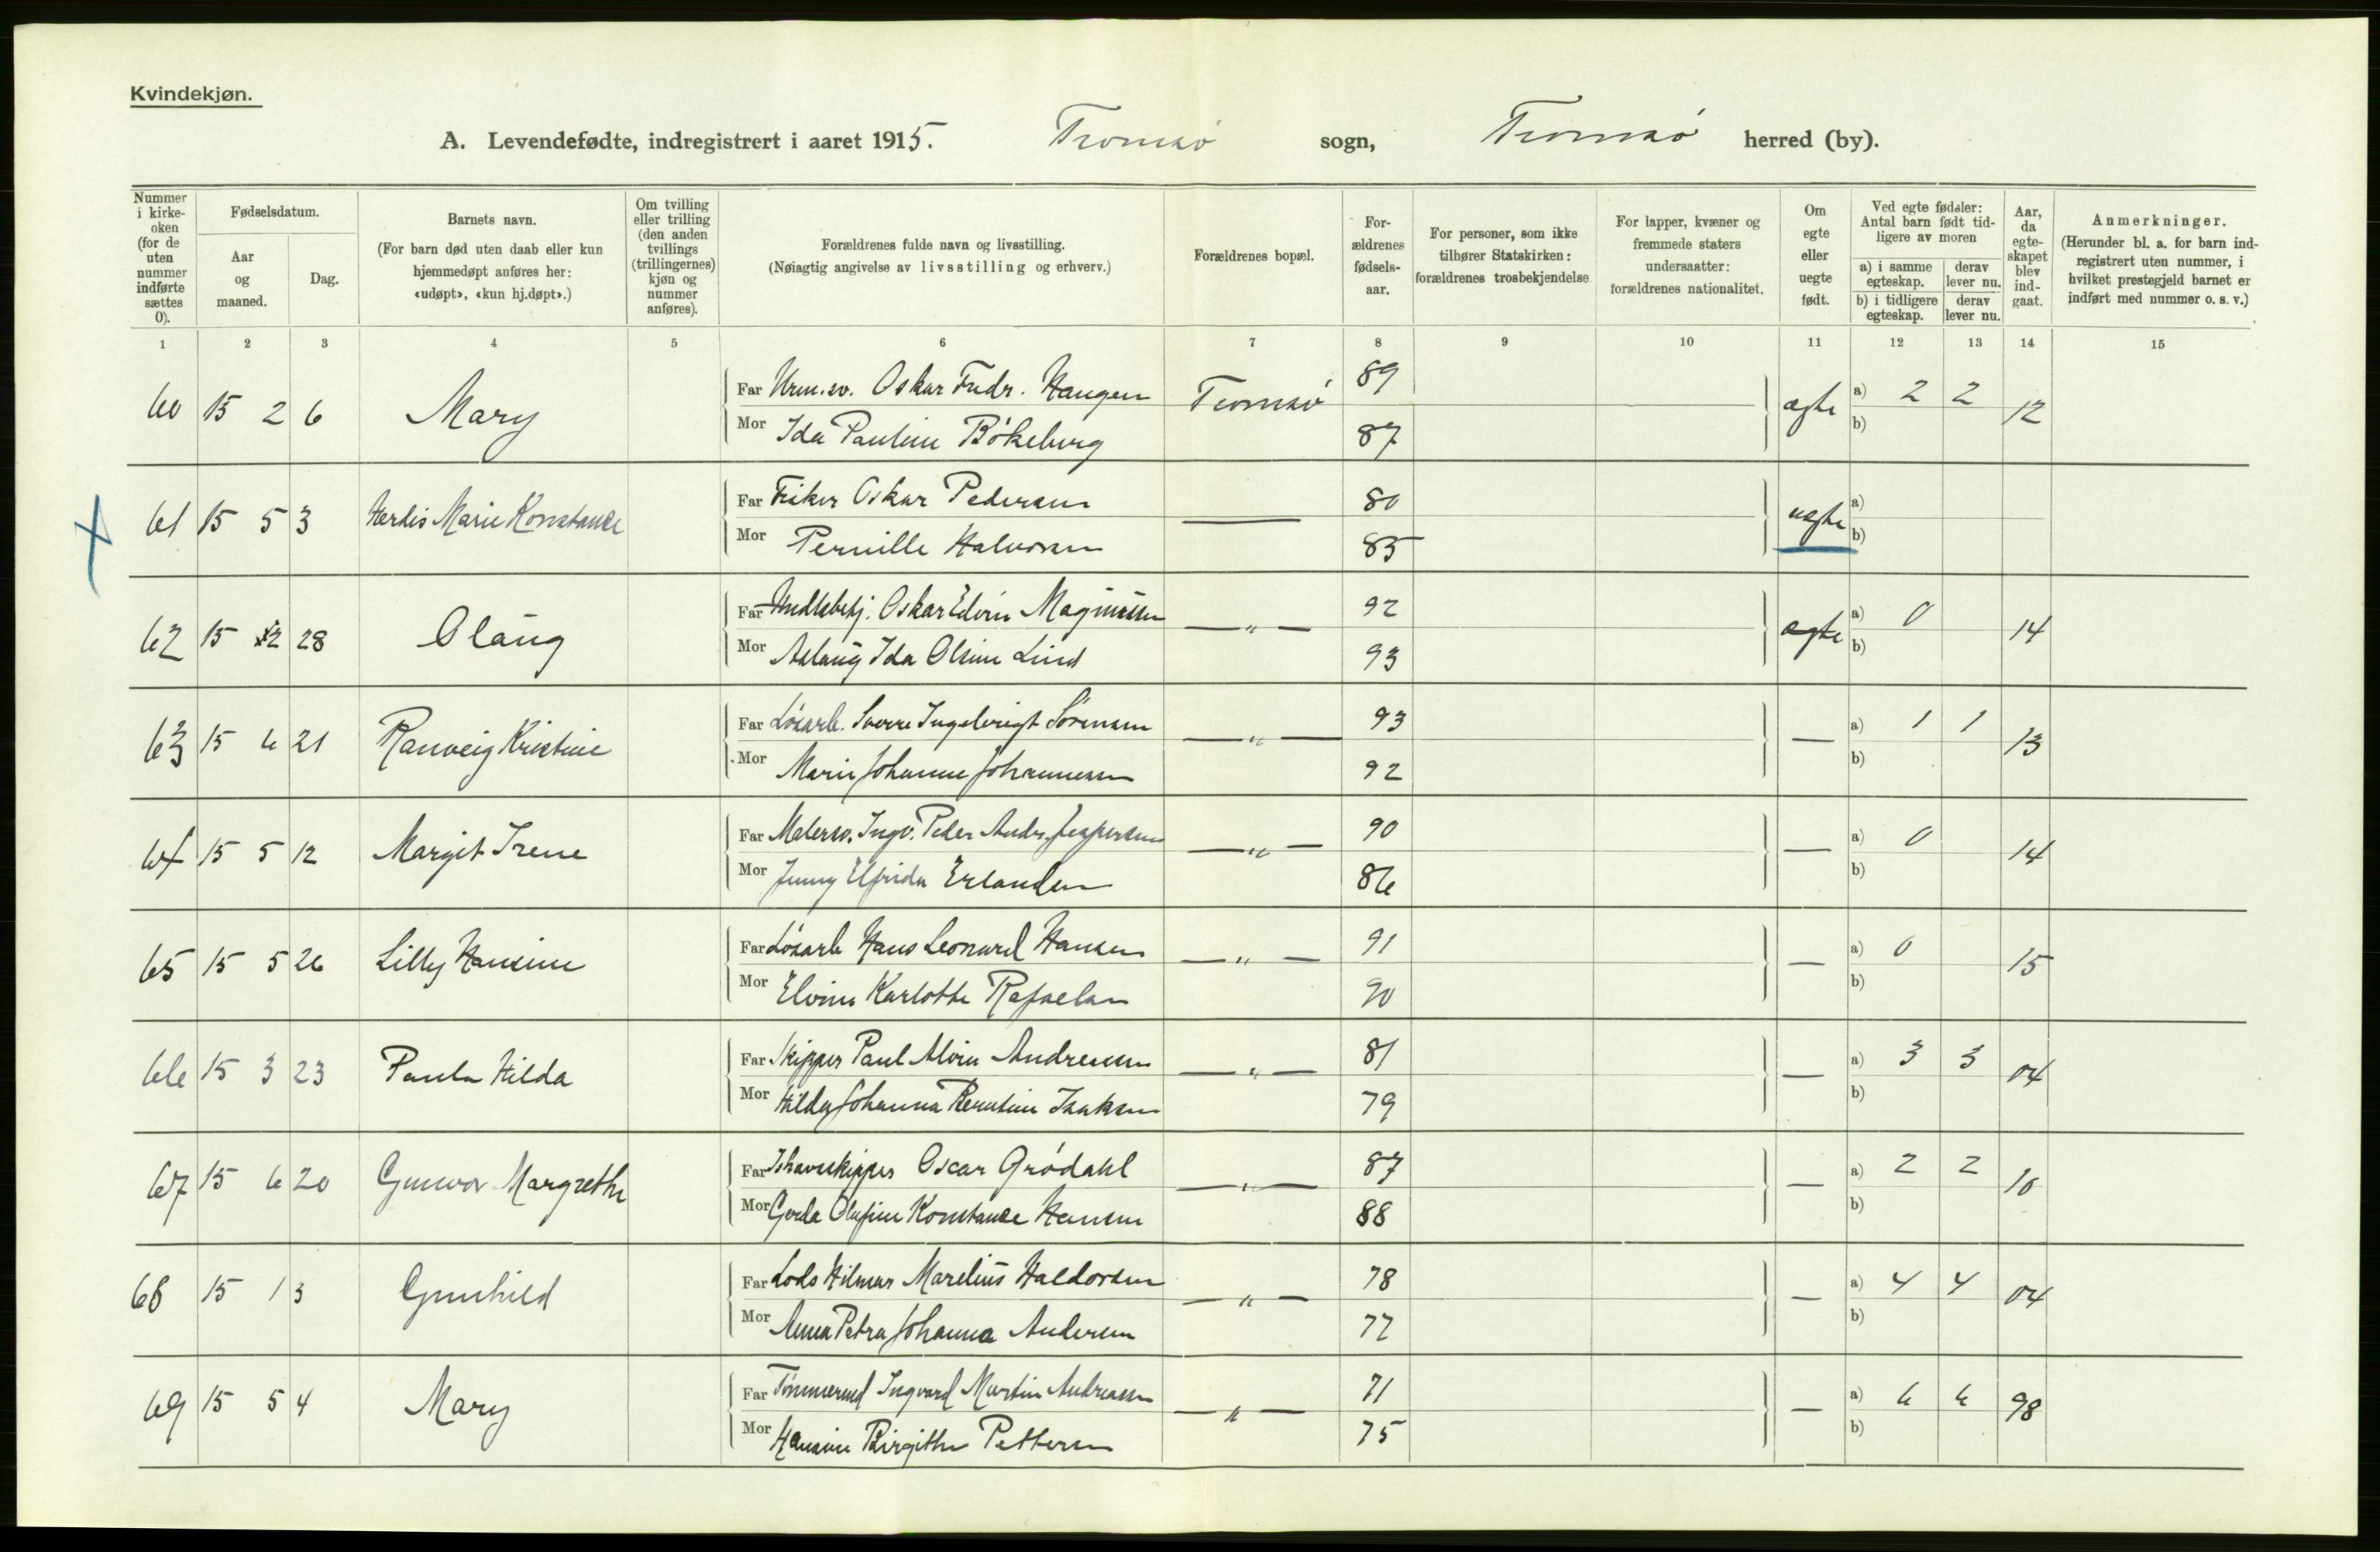 Kvindekjøn.
A. Levendefødte, indregistrert i aaret 1915. Tromsø sogn, Tromsø herred (by).
Nummer i kirke-oken (for de uten nummer indførte sættes 0).
Fødselsdatum.
Aar og maaned.
Dag.
Barnets navn.
(For barn død uten daab eller kun hjemmedøpt anføres her: «udøpt», «kun hj.døpt».)
Om tvilling eller trilling (den anden tvillings (trillingernes) kjøn og nummer anføres).
Forældrenes fulde navn og livsstilling.
(Nøiagtig angivelse av livsstilling og erhverv.)
Forældrenes bopæl.
For-ældrenes fødsels-aar.
For personer, som ikke tilhører Statskirken: forældrenes trosbekjendelse
For lapper, kvæner og fremmede staters undersaatter: forældrenes nationalitet.
Om egte eller uegte født.
Ved egte fødsler: Antal barn født tid-ligere av moren
a) i samme egteskap.
derav lever nu.
b) i tidligere egteskap.
derav lever nu.
Aar, da egte-skapet blev ind-gaat.
Anmerkninger.
(Herunder bl. a. for barn ind-registrert uten nummer, i hvilket prestegjeld barnet er indført med nummer o. s. v.)
1 2 3 4 5 6 7 8 9 10 11 12 13 14 15
60 15 2 6 Mary Far Urm.sv. Oskar Fredr. Haugen Tromsø 89 ægte a) 2 2 12
Mor Ida Pauline Bøkeberg 87 b)
61 15 5 3 Herdis Marie Konstance Far Fisker Oskar Pedersen — 80 uægte a)
Mor Pernille Halvorsen 85 b)
62 15 2 28 Olaug Far Oskar Edvin Magnussen —"— 92 ægte a) 0 14
Mor Aslaug Ida Olsine Lind 93 b)
63 15 6 21 Ranveig Kristine Far Løsarb. Sverre Ingebrigt Sørensen —"— 93 — a) 1 1 13
Mor Marie Johanne Johannessen 92 b)
64 15 5 12 Margit Irene Far Malersv. Ingv. Peder Andr. Jespersen —"— 90 — a) 0 14
Mor Jenny Elfrida Erlandsen 86 b)
65 15 5 26 Lilly Hansine Far Løsarb Hans Leonard Hansen —"— 91 — a) 0 15
Mor Elvine Karlotte Rafaelsen 90 b)
66 15 3 23 Paula Hilda Far Skipper Paul Alvin Andreassen —"— 81 — a) 3 3 04
Mor Hilda Johanna Isaksen 79 b)
67 15 6 20 Gunvor Margrethe Far Ishavsskipper Oscar Grødahl —"— 87 — a) 2 2 10
Mor Gerda Olufine Konstance Hansen 88 b)
68 15 1 3 Gunhild Far Lods Hilmar Marelius Haldorsen —"— 78 — a) 4 4 04
Mor Anna Petra Johanna Andersen 77 b)
69 15 5 4 Mary Far Tømmermd Ingvard Martin Andreassen —"— 71 — a) 6 6 98
Mor Hansine Birgithe Pettersen 75 b)